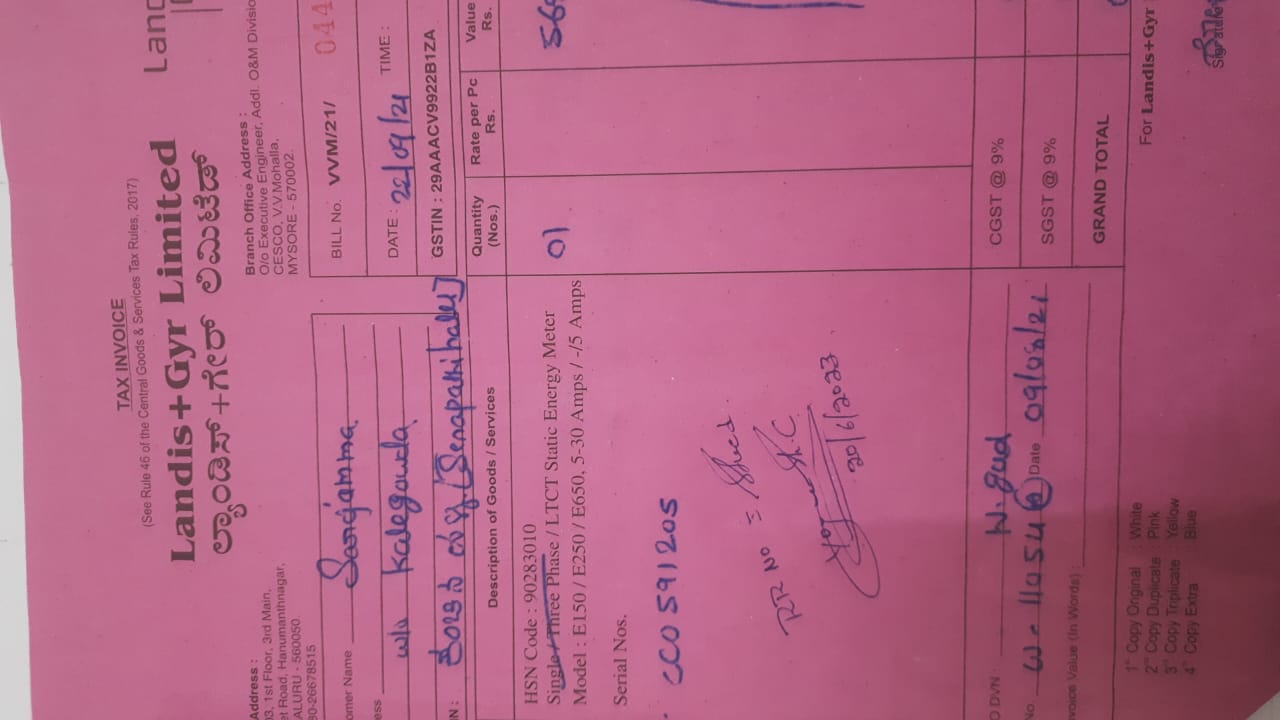 TAX INVOICE
(See Rule 46 of the Central Goods & Services Tax Rules, 2017)
Landis+Gyr Limited
ಲ್ಯಾಂಡಿಸ್+ಗೀರ್ ಲಿಮಿಟೆಡ್
Land
Address :
1st Floor, 3rd Main,
Road, Hanumanthnagar,
ALURU - 560050
80-26678515
Branch Office Address :
O/o Executive Engineer, Addl. O&M Divisio
CESCO, V.V.Mohalla,
MYSORE - 570002.
BILL No. VVM/21/ 044
DATE : 22/09/21 TIME :
GSTIN : 29AAACV9922B1ZA
omer Name
ess w/o Kalegowda
IN : (Senapathihalli)
Description of Goods / Services
Quantity (Nos.)
Rate per Pc Rs.
Value Rs.
HSN Code : 90283010
Single / Three Phase / LTCT Static Energy Meter
Model : E150 / E250 / E650, 5-30 Amps / -/5 Amps
01
Serial Nos.
CC0591205
RR No =
20/6/2023
O DVN :
No. 11054 Date 09/08/21
nvoice Value (In Words) :
CGST @ 9%
SGST @ 9%
GRAND TOTAL
1st Copy Original : White
2nd Copy Duplicate : Pink
3rd Copy Triplicate : Yellow
4th Copy Extra : Blue
For Landis+Gyr
Signature